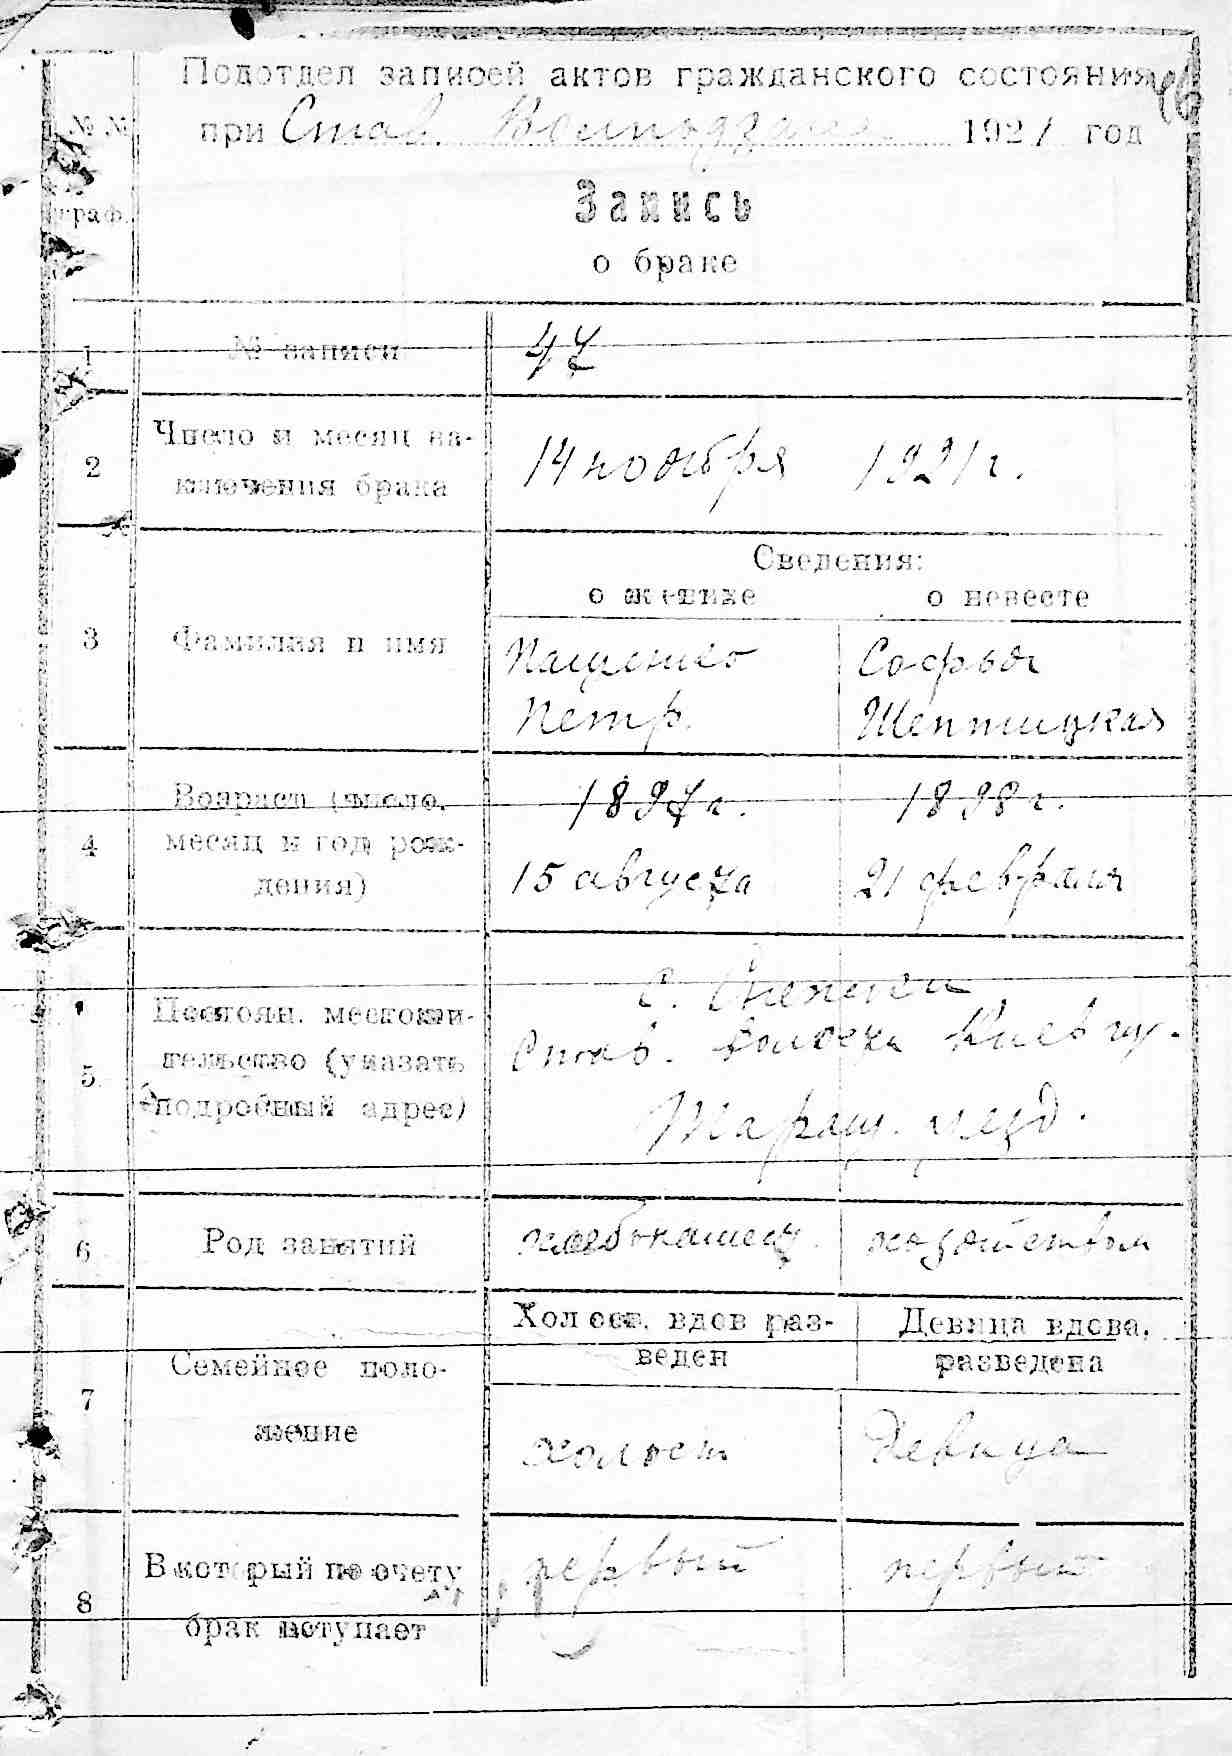 Подотдел записей актов гражданского состояния
№№ при Став. 1921 год
граф.
Запись
о браке
1 № записи 47
2 Число и месяц за-
ключения брака 14 ноября 1921 г.
Сведения:
о женихе о невесте
3 Фамилия и имя
Пащенко Софья
Петр. Шептицкая
Возраст (число, 1897 г. 1898 г.
4 месяц и год рож-
дения) 15 августа 21 февраля
с.
Постоян. местожи-
5 тельство (указать Став. волости Киев гу.
подробный адрес) Таращ. уезд.
6 Род занятий хлебопашец. хозяйством
Холост. вдов раз- Девица вдова,
веден разведена
7 Семейное поло-
жение холост Девица
8 В который по счету первый первый
брак вступает